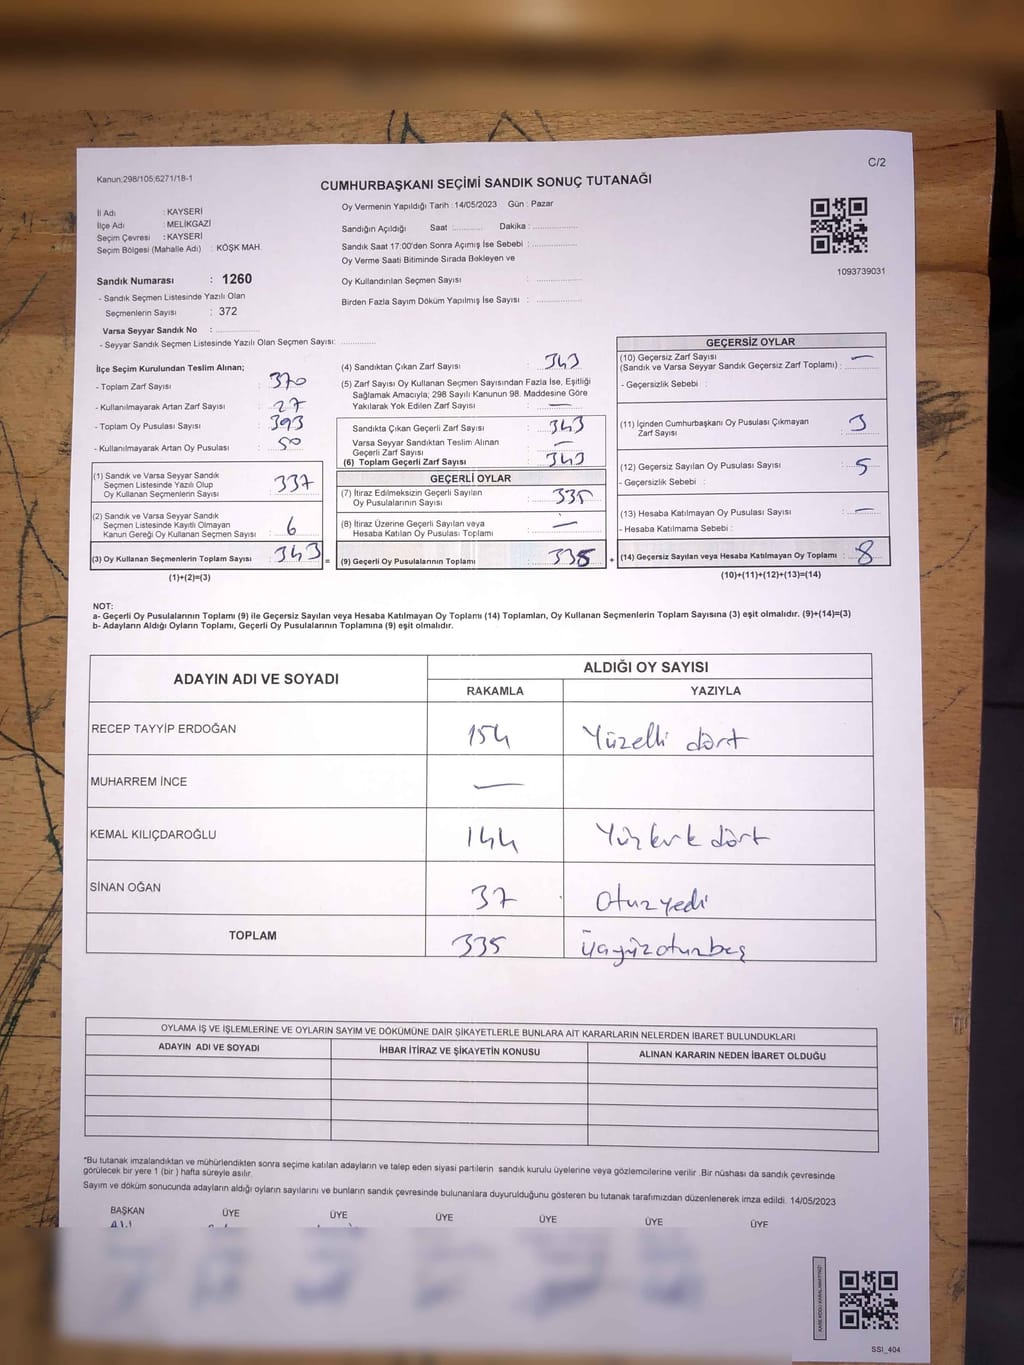 C/2
Kanun:298/105,6271/18-1
CUMHURBAŞKANI SEÇİMİ SANDIK SONUÇ TUTANAĞI
İl Adı : KAYSERİ
İlçe Adı : MELİKGAZİ
Seçim Çevresi : KAYSERİ
Seçim Bölgesi (Mahalle Adı) : KÖŞK MAH.
Sandık Numarası : 1260
- Sandık Seçmen Listesinde Yazılı Olan
Seçmenlerin Sayısı : 372
Varsa Seyyar Sandık No :
- Seyyar Sandık Seçmen Listesinde Yazılı Olan Seçmen Sayısı:
Oy Vermenin Yapıldığı Tarih : 14/05/2023 Gün : Pazar
Sandığın Açıldığı Saat : Dakika :
Sandık Saat 17:00'den Sonra Açımış İse Sebebi :
Oy Verme Saati Bitiminde Sırada Bekleyen ve
Oy Kullandırılan Seçmen Sayısı :
Birden Fazla Sayım Döküm Yapılmış İse Sayısı :
1093739031
İlçe Seçim Kurulundan Teslim Alınan;
- Toplam Zarf Sayısı : 370
- Kullanılmayarak Artan Zarf Sayısı : 27
- Toplam Oy Pusulası Sayısı : 393
- Kullanılmayarak Artan Oy Pusulası : 50
(1) Sandık ve Varsa Seyyar Sandık
Seçmen Listesinde Yazılı Olup
Oy Kullanan Seçmenlerin Sayısı : 337
(2) Sandık ve Varsa Seyyar Sandık
Seçmen Listesinde Kayıtlı Olmayan
Kanun Gereği Oy Kullanan Seçmen Sayısı : 6
(3) Oy Kullanan Seçmenlerin Toplam Sayısı : 343 =
(1)+(2)=(3)
(4) Sandıktan Çıkan Zarf Sayısı : 343
(5) Zarf Sayısı Oy Kullanan Seçmen Sayısından Fazla İse, Eşitliği
Sağlamak Amacıyla; 298 Sayılı Kanunun 98. Maddesine Göre
Yakılarak Yok Edilen Zarf Sayısı : —
Sandıkta Çıkan Geçerli Zarf Sayısı : 343
Varsa Seyyar Sandıktan Teslim Alınan
Geçerli Zarf Sayısı : —
(6) Toplam Geçerli Zarf Sayısı : 343
GEÇERLİ OYLAR
(7) İtiraz Edilmeksizin Geçerli Sayılan
Oy Pusulalarının Sayısı : 335
(8) İtiraz Üzerine Geçerli Sayılan veya
Hesaba Katılan Oy Pusulası Toplamı : —
(9) Geçerli Oy Pusulalarının Toplamı : 335 +
GEÇERSİZ OYLAR
(10) Geçersiz Zarf Sayısı
(Sandık ve Varsa Seyyar Sandık Geçersiz Zarf Toplamı) : —
- Geçersizlik Sebebi :
(11) İçinden Cumhurbaşkanı Oy Pusulası Çıkmayan
Zarf Sayısı : 3
(12) Geçersiz Sayılan Oy Pusulası Sayısı : 5
- Geçersizlik Sebebi :
(13) Hesaba Katılmayan Oy Pusulası Sayısı : —
- Hesaba Katılmama Sebebi :
(14) Geçersiz Sayılan veya Hesaba Katılmayan Oy Toplamı : 8
(10)+(11)+(12)+(13)=(14)
NOT:
a- Geçerli Oy Pusulalarının Toplamı (9) ile Geçersiz Sayılan veya Hesaba Katılmayan Oy Toplamı (14) Toplamları, Oy Kullanan Seçmenlerin Toplam Sayısına (3) eşit olmalıdır. (9)+(14)=(3)
b- Adayların Aldığı Oyların Toplamı, Geçerli Oy Pusulalarının Toplamına (9) eşit olmalıdır.
ADAYIN ADI VE SOYADI
ALDIĞI OY SAYISI
RAKAMLA YAZIYLA
RECEP TAYYİP ERDOĞAN 154 Yüzelli dört
MUHARREM İNCE —
KEMAL KILIÇDAROĞLU 144 Yüz kırk dört
SİNAN OĞAN 37 Otuz yedi
TOPLAM 335 üçyüzotuzbeş
OYLAMA İŞ VE İŞLEMLERİNE VE OYLARIN SAYIM VE DÖKÜMÜNE DAİR ŞİKAYETLERLE BUNLARA AİT KARARLARIN NELERDEN İBARET BULUNDUKLARI
ADAYIN ADI VE SOYADI İHBAR İTİRAZ VE ŞİKAYETİN KONUSU ALINAN KARARIN NEDEN İBARET OLDUĞU
*Bu tutanak imzalandıktan ve mühürlendikten sonra seçime katılan adayların ve talep eden siyasi partilerin sandık kurulu üyelerine veya gözlemcilerine verilir .Bir nüshası da sandık çevresinde
görülecek bir yere 1 (bir ) hafta süreyle asılır.
Sayım ve döküm sonucunda adayların aldığı oyların sayılarını ve bunların sandık çevresinde bulunanlara duyurulduğunu gösteren bu tutanak tarafımızdan düzenlenerek imza edildi. 14/05/2023
BAŞKAN ÜYE ÜYE ÜYE ÜYE ÜYE ÜYE
SSI_404